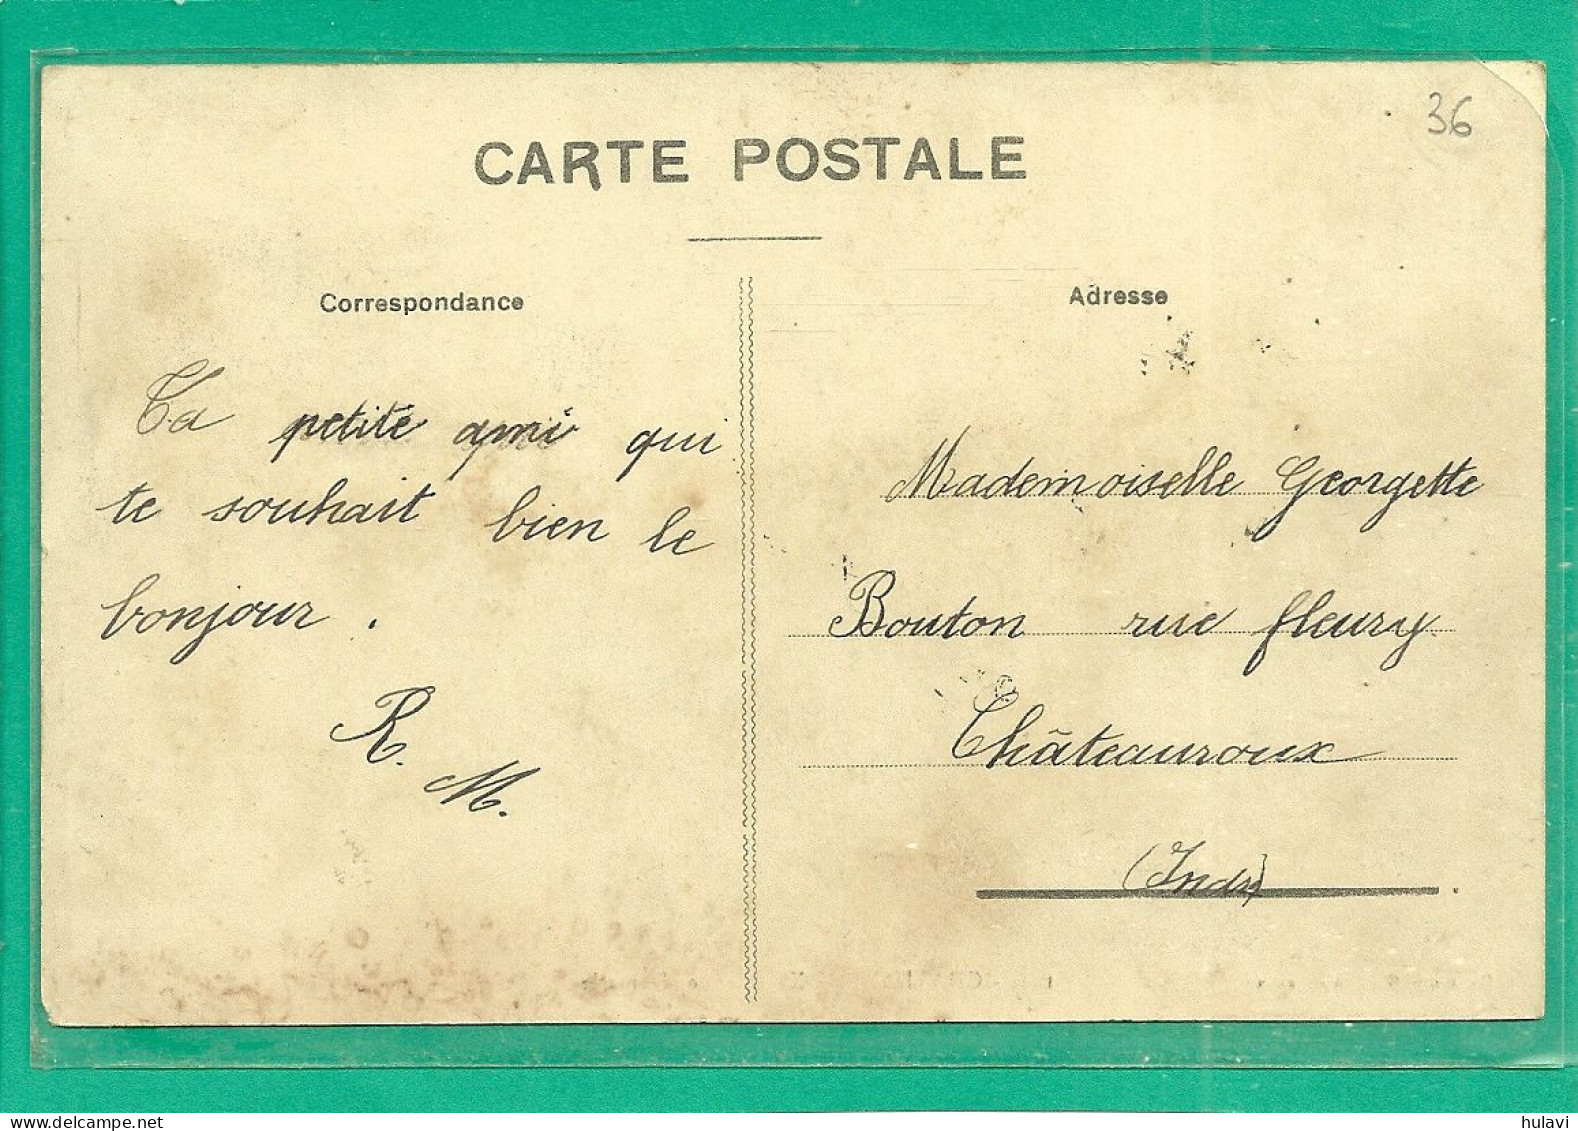 36
CARTE POSTALE
Correspondance
Ta petite ami qui
te souhait bien le
bonjour.
R.
M.
Adresse
Mademoiselle Georgette
Bouton rue fleury
Châteauroux
(Indre)
delcampe.net
hulavi